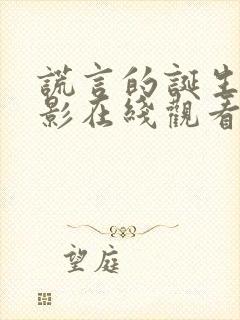 謊言的誕生
影在綫觀看
望庭